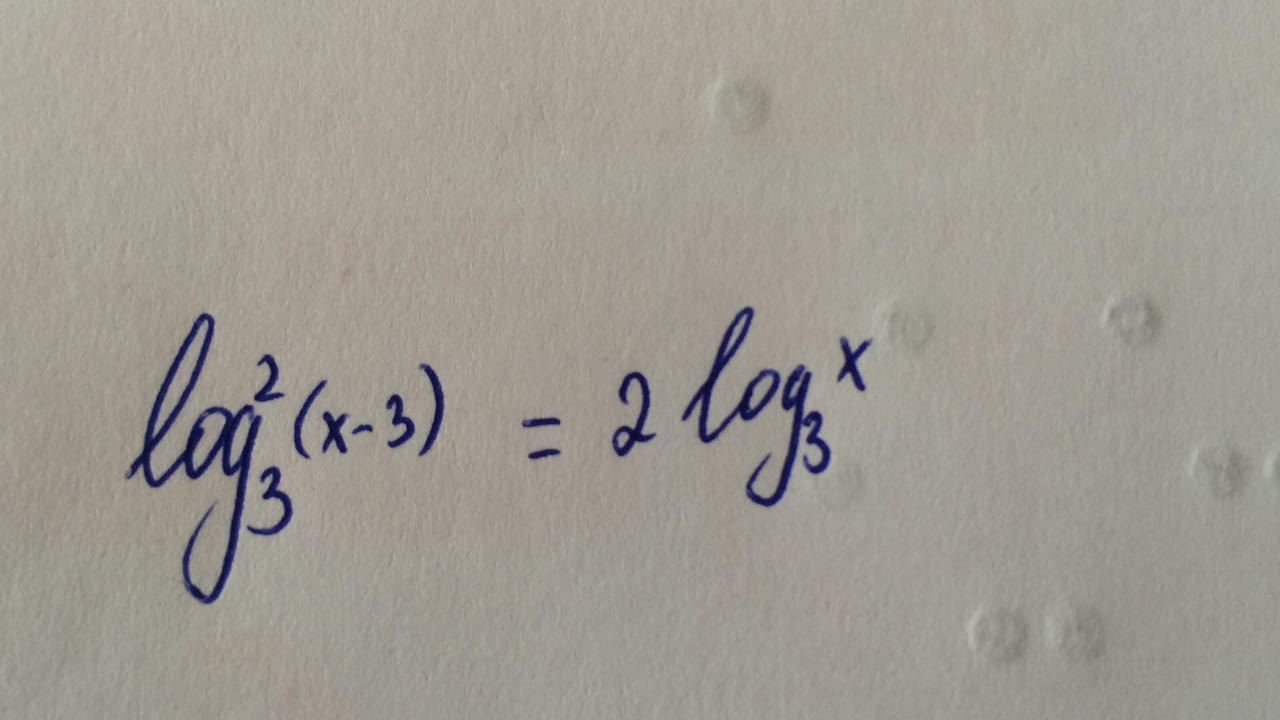 log₃²(x-3) = 2 log₃ x